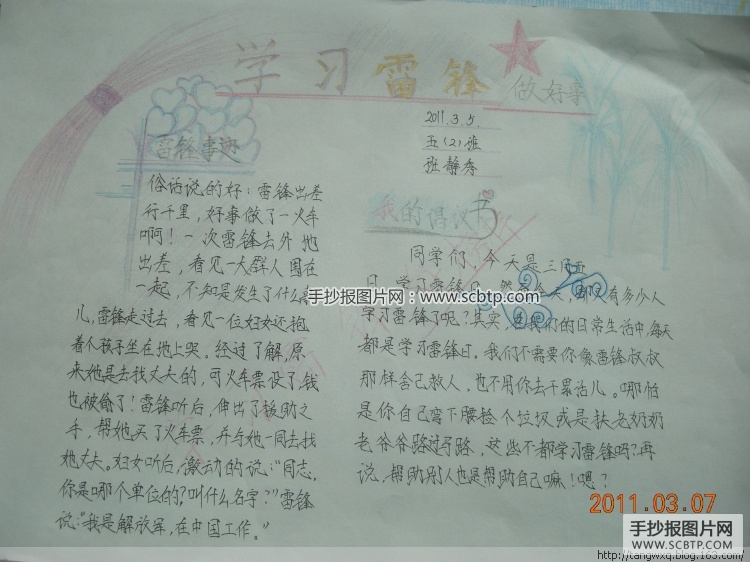 学习雷锋
做好事
2011.3.5
五(2)班
班静秀
雷锋事迹
俗话说的好：雷锋出差
行千里，好事做了一火车
啊！一次雷锋去外地
出差，看见一大群人围在
一起，不知是发生了什么
儿，雷锋走过去，看见一位妇女还抱
着个孩子坐在地上哭。经过了解，原
来她是去找丈夫的，可火车票没了，钱
也被偷了！雷锋听后，伸出了援助之
手，帮她买了火车票，并与她一同去找
她丈夫。妇女听后，激动的说：“同志，
你是哪个单位的？叫什么名字？”雷锋
说：“我是解放军，在中国工作。”
我的倡议书
同学们，今天是三月五
日，学习雷锋日，然而今天，却又有多少人
学习雷锋了呢？其实，在我们的日常生活中，每天
都是学习雷锋日，我们不需要你像雷锋叔叔
那样舍己救人，也不用你去干累活儿。哪怕
是你自己弯下腰捡个垃圾，或是扶老奶奶
老爷爷路过马路，这些不都学习雷锋吗？再
说，帮助别人也是帮助自己嘛！嗯？
手抄报图片网：www.scbtp.com
2011.03.07
手抄报图片网
WWW.SCBTP.COM
http://tangwxq.blog.163.com/